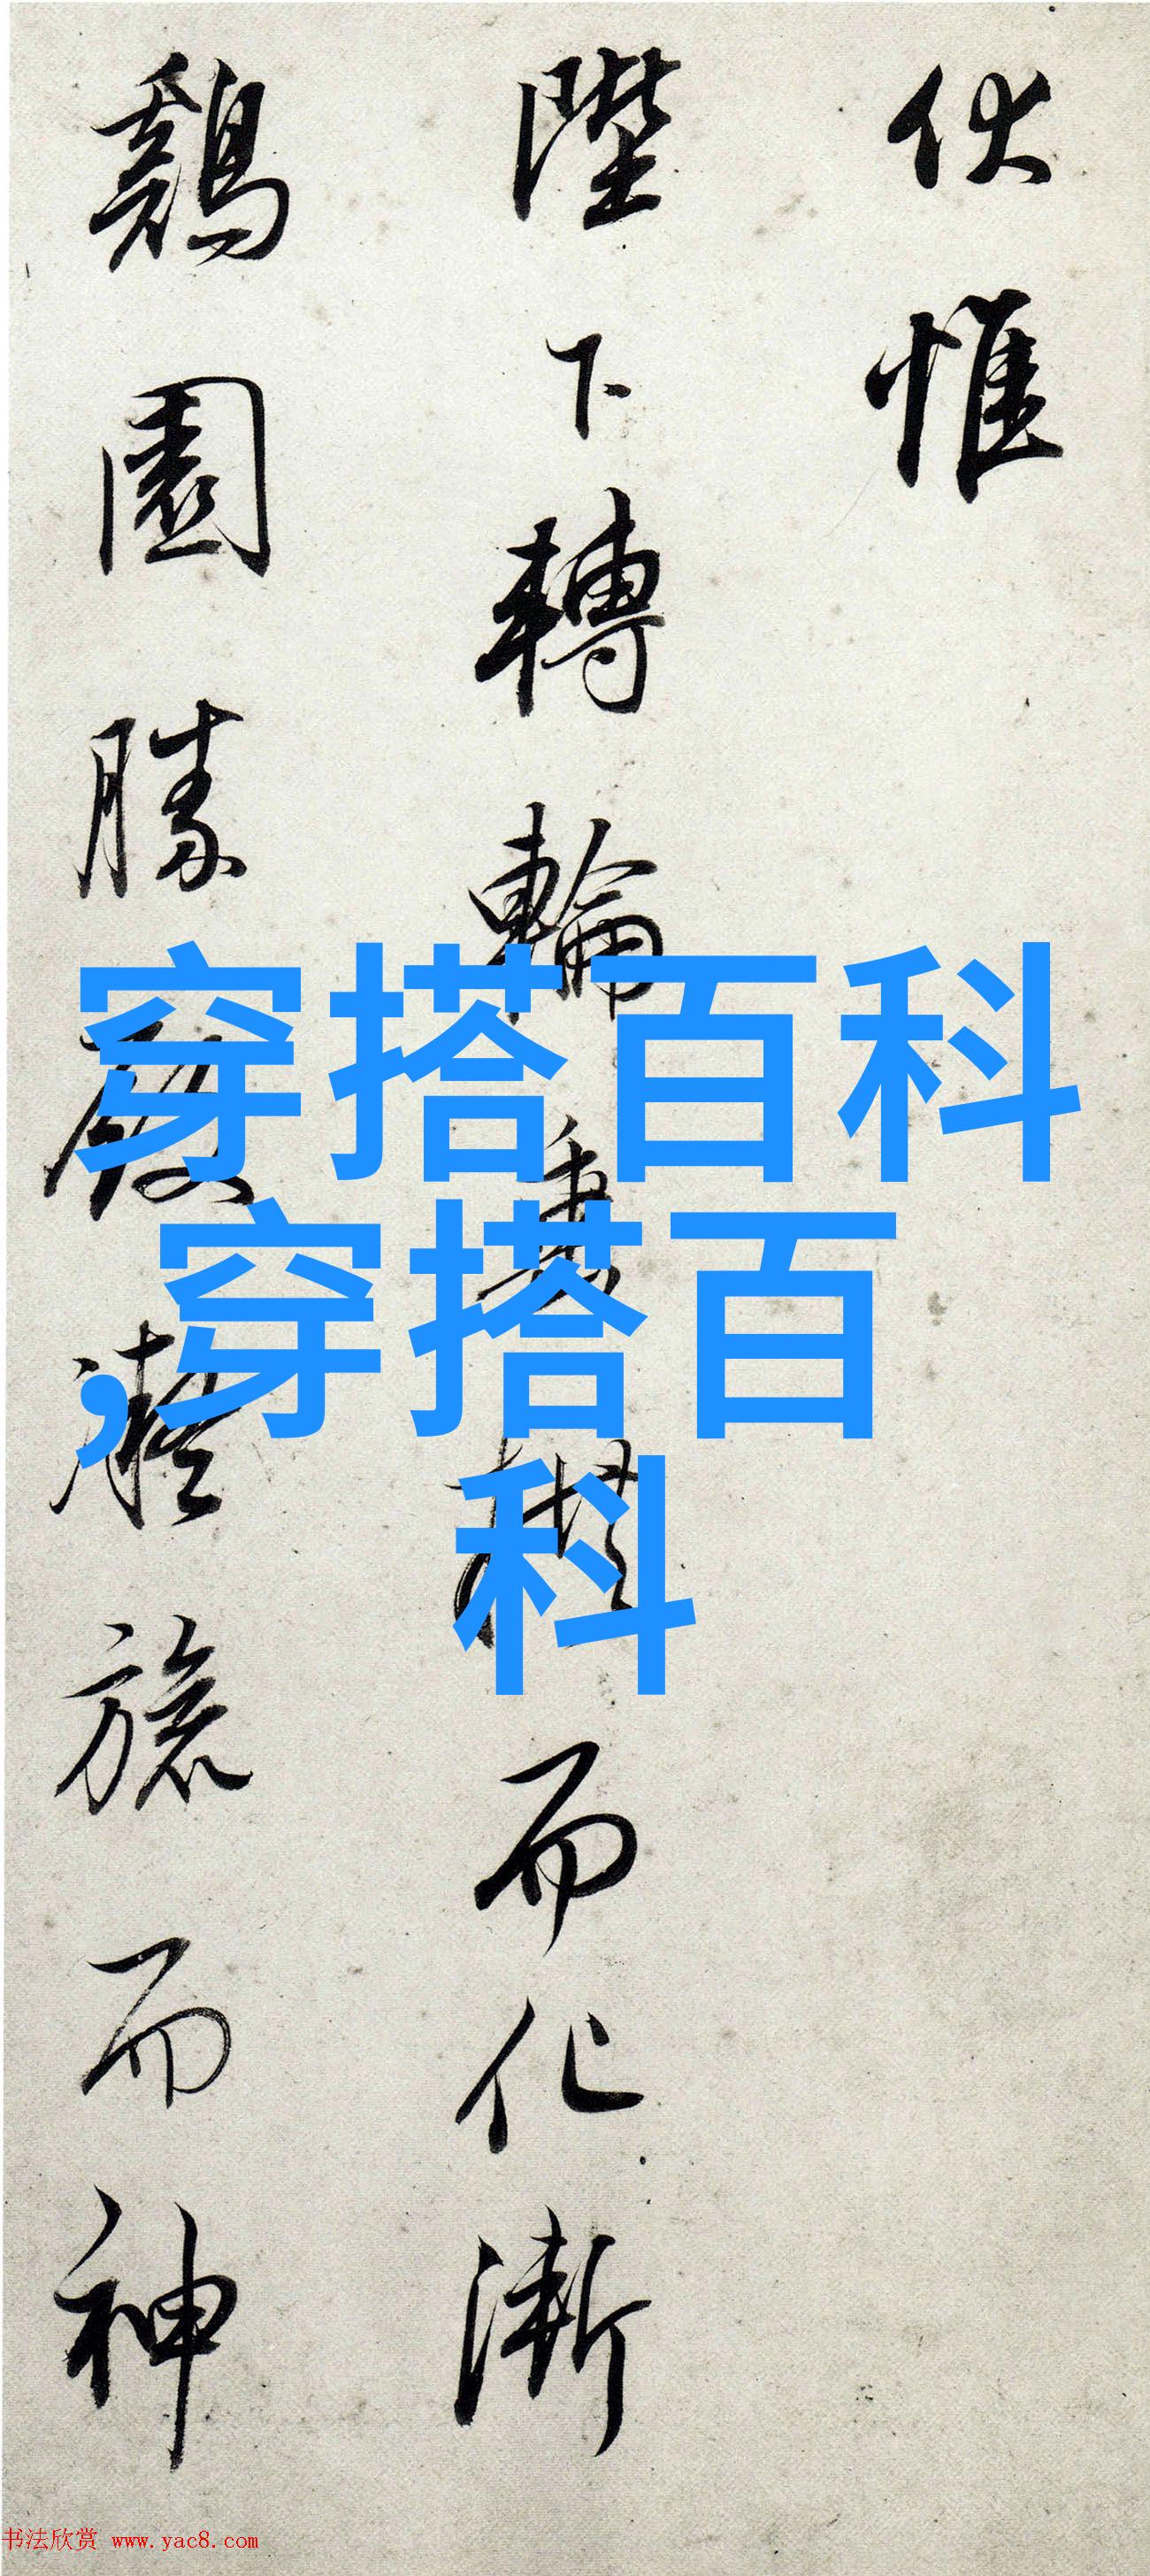 伏惟
陛下轉輪垂拱而化漸
鷄園勝殿凝旒而神
穿搭百科
,穿搭百
科
书法欣赏 www.yac8.com